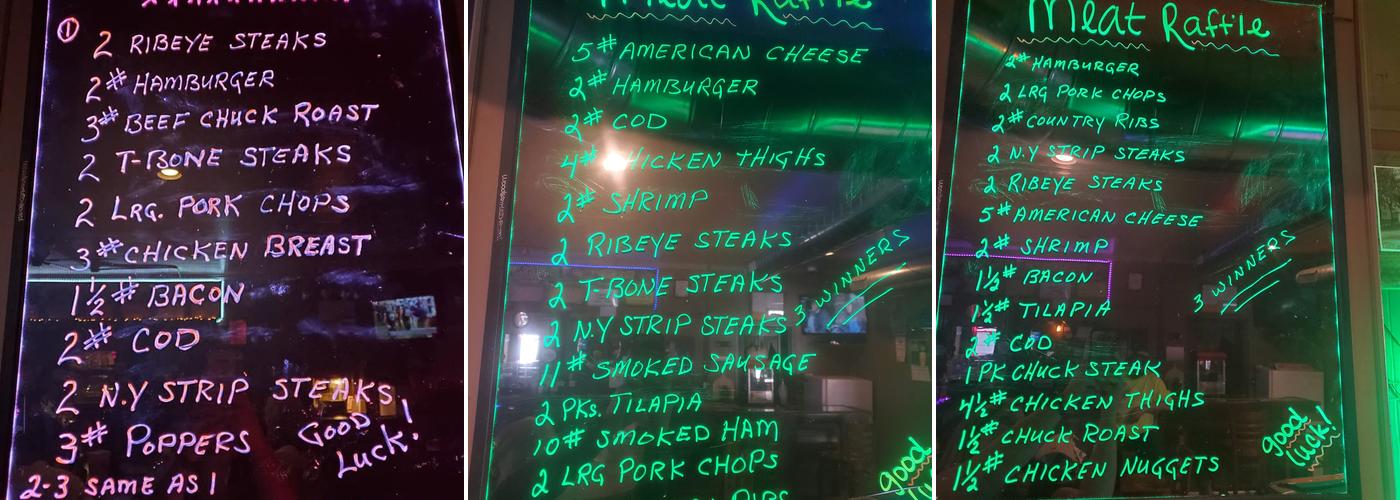 ①
2 RIBEYE STEAKS
2# HAMBURGER
3# BEEF CHUCK ROAST
2 T-BONE STEAKS
2 LRG. PORK CHOPS
3# CHICKEN BREAST
1½# BACON
2# COD
2 N.Y STRIP STEAKS
3# POPPERS
GOOD LUCK!
2-3 SAME AS 1
Meat Raffle
5# AMERICAN CHEESE
2# HAMBURGER
2# COD
4# CHICKEN THIGHS
2# SHRIMP
2 RIBEYE STEAKS
2 T-BONE STEAKS
2 N.Y STRIP STEAKS
3 WINNERS
11# SMOKED SAUSAGE
2 PKs. TILAPIA
10# SMOKED HAM
2 LRG PORK CHOPS
RIBS
good
Meat Raffle
2# HAMBURGER
2 LRG PORK CHOPS
2# COUNTRY RIBS
2 N.Y STRIP STEAKS
2 RIBEYE STEAKS
5# AMERICAN CHEESE
2# SHRIMP
1½# BACON
3 WINNERS
1½# TILAPIA
2# COD
1 PK CHUCK STEAK
4½# CHICKEN THIGHS
1½# CHUCK ROAST
1½# CHICKEN NUGGETS
good luck!